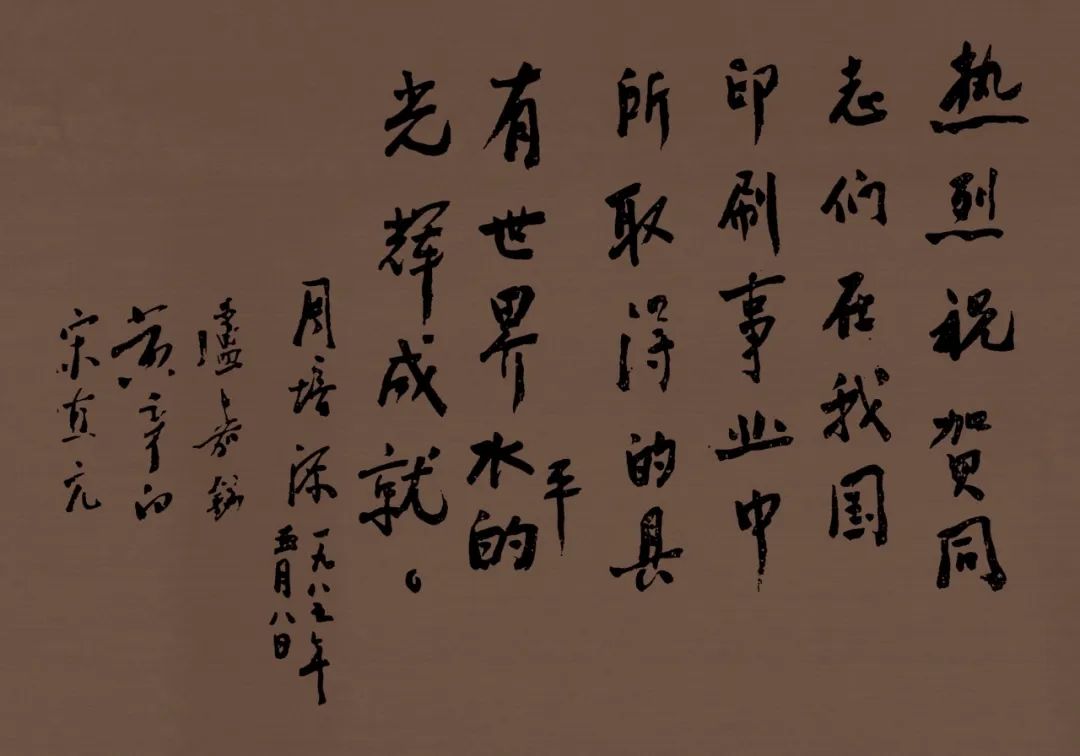 热烈祝贺同
志们在我国
印刷事业中
所取得的具
有世界水平的
光辉成就。
周培源
一九八五年
五月八日
盧嘉錫
黄辛白
宋直元